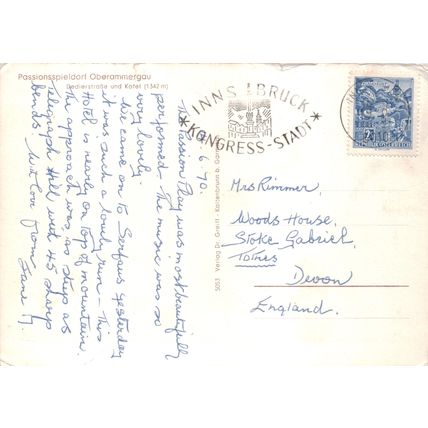 Passionsspieldorf Oberammergau
Dedlerstraße und Kofel (1342 m)
6.70.
The Passion Play was most beautifully
performed. The music was so
very lovely.
We came on to Serfaus yesterday
it was such a lovely run - This
Hotel is nearly on top of mountain.
the approach was as steep as
Telegraph Hill with 45 sharp
bends! With love from
Jane
INNSBRUCK
*KONGRESS-STADT*
5053 Verlag Dr.
Mrs Rimmer,
Woods House,
Stoke Gabriel,
Totnes
Devon
England.